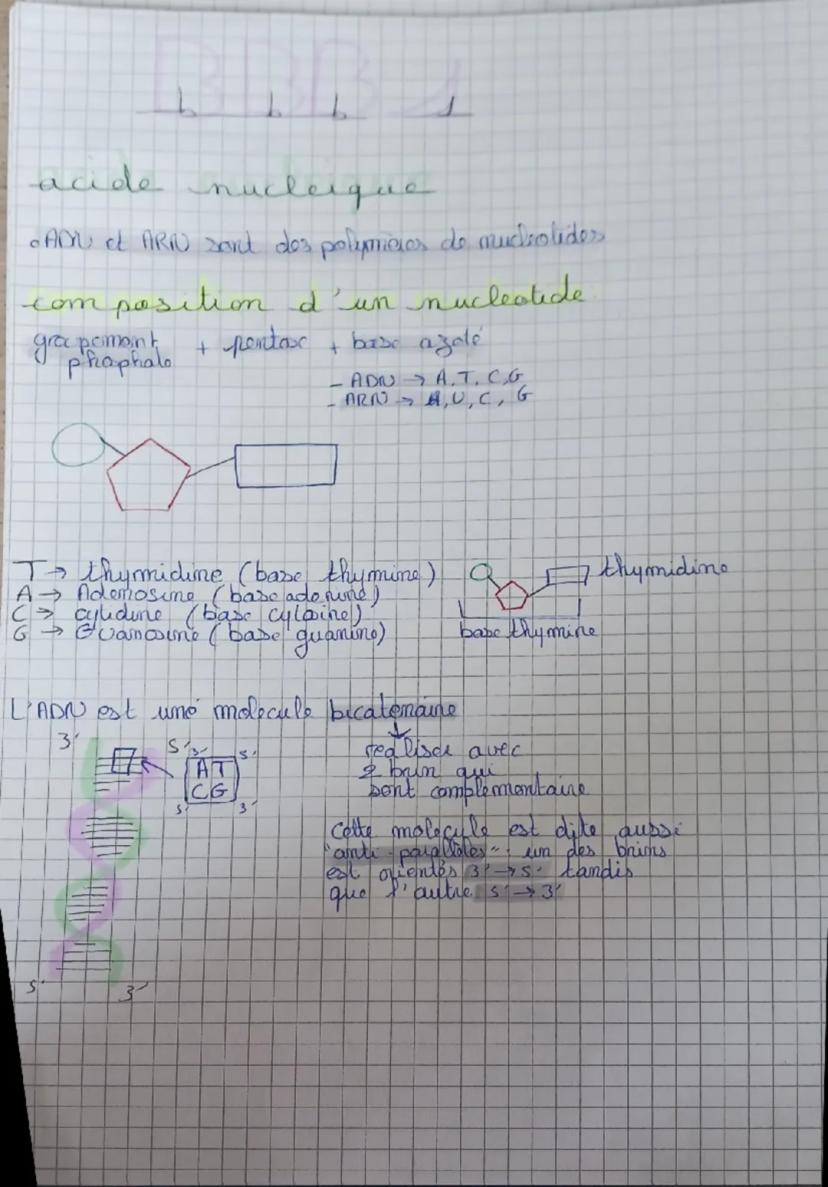 BBB 1
acide nucleique
• ADN et ARN sont des polymères de nucleotides
composition d'un nucleotide
groupement phosphate + pentose + base azoté
- ADN → A, T, C, G
- ARN → A, U, C, G
T → thymidine (base thymine)
thymidine
A → Adenosine (base adenine)
C → cytidine (base cytosine)
G → Guanosine (base guanine)
base thymine
L'ADN est une molecule bicatenaine
3' 5' 3' 5'
A T
C G
5' 3'
realiser avec
2 brin qui
sont complementaire
Cette molecule est dite aussi
"anti-parallèles" : un des brins
est orientés 3' → 5' tandis
que l'autre 5' → 3'
5' 3'